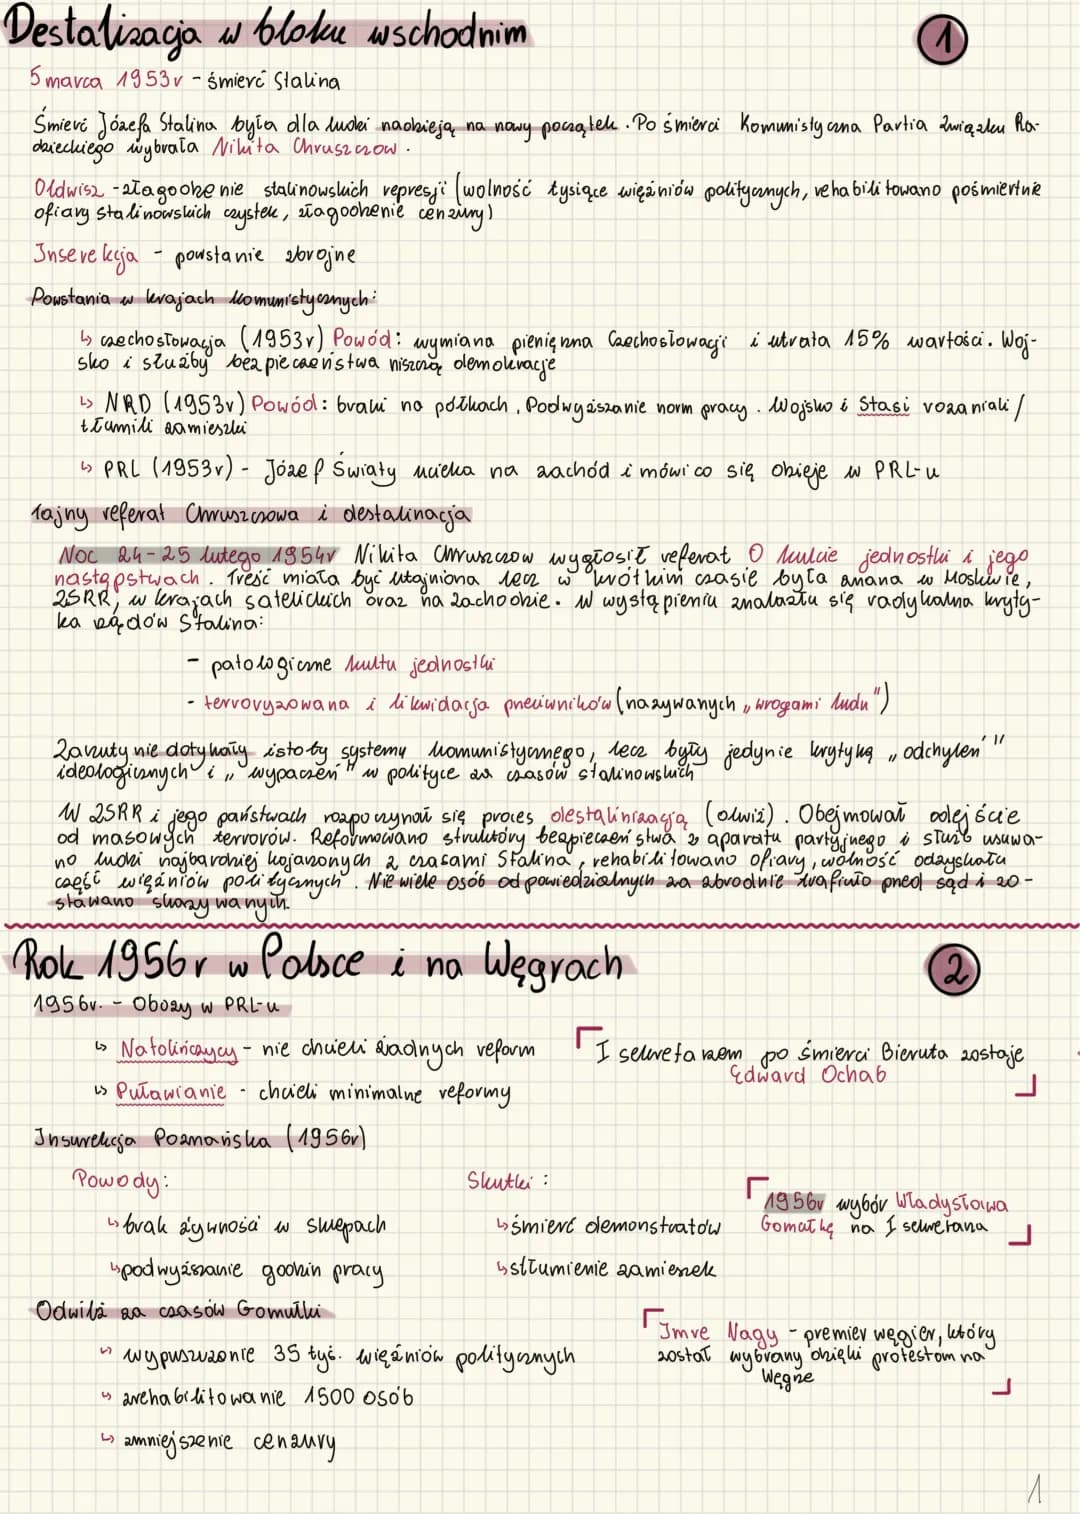 Destalizacja w bloku wschodnim
1
5 marca 1953r - śmierć Stalina
Śmierć Józefa Stalina była dla ludzi nadzieją na nowy początek. Po śmierci Komunistyczna Partia Związku Ra-
dzieckiego wybrała Nikita Chruszczow.
Oldwisz - złagodzenie stalinowskich represji (wolność tysiące więźniów politycznych, rehabilitowano pośmiertnie
ofiary stalinowskich czystek, złagodzenie cenzury)
Inserekcja - powstanie zbrojne
Powstania w krajach komunistycznych:
↳ czechosłowacja (1953r) Powód: wymiana pieniężna Czechosłowacji i utrata 15% wartości. Woj-
sko i służby bezpieczeństwa niszczą demokracje
↳ NRD (1953r) Powód: braki na półkach, Podwyższanie norm pracy. Wojsko i Stasi rozganiali/
tłumili zamieszki
↳ PRL (1953r) - Józef Światy ucieka na zachód i mówi co się dzieje w PRL-u
Tajny referat Chruszczowa i destalinacja
Noc 24-25 lutego 1954r Nikita Chruszczow wygłosił referat O kulcie jednostki i jego
następstwach. Treść miała być utajniona lecz w krótkim czasie była znana w Moskwie,
ZSRR, w krajach satelickich oraz na zachodzie. W wystąpieniu znalazłu się radykalna kryty-
ka rządów Stalina:
- patologiczne kultu jednostki
- terroryzowana i likwidacja przeciwników (nazywanych „wrogami ludu")
Zarzuty nie dotykały istoty systemy komunistycznego, lecz były jedynie krytyką „odchyleń"
ideologicznych i „wypaczeń" w polityce za czasów stalinowskich
W ZSRR i jego państwach rozpoczynał się proces destalinizacją (odwilż). Obejmował odejście
od masowych terrorów. Reformowano struktóry bezpieczeństwa z aparatu partyjnego i służb usuwa-
no ludzi najbardziej kojarzonych z czasami Stalina, rehabilitowano ofiary, wolność odzyskała
część więźniów politycznych. Niewiele osób odpowiedzialnych za zbrodnie trafiuło przed sąd i zo-
stawano skazywanych.
Rok 1956r w Polsce i na Węgrach
2
1956r. - Obozy w PRL-u
↳ Natolińczycy - nie chcieli żadnych reform
↳ Puławianie - chcieli minimalne reformy
I sekretarzem po śmierci Bieruta zostaje
Edward Ochab
Insurekcja Poznańska (1956r)
Powody:
↳ brak żywności w sklepach
↳ podwyższanie godzin pracy
Skutki:
↳ śmierć demonstratów
↳ stłumienie zamieszek
1956r wybór Władysława
Gomułkę na I sekretarza
Odwilż za czasów Gomułki
↳ wypuszczanie 35 tyś. więźniów politycznych
↳ zrehabilitowanie 1500 osób
↳ zmniejszenie cenzury
Imre Nagy - premier węgier, który
został wybrany dzięki protestom na
Węgrze
1